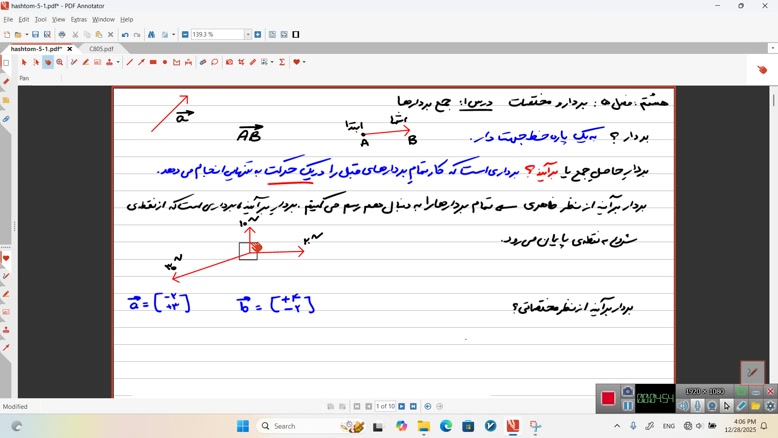 hashtom-5-1.pdf* - PDF Annotator
File Edit Tool View Extras Window Help
139.3 %
hashtom-5-1.pdf* C805.pdf
Pan
هشتم: فصل ۵: بردار و مختصات درس ۱: جمع بردارها
a
AB
ابتدا انتها
A B
بردار؟ به یک پاره خط جهت دار.
بردار حاصل جمع یا برآیند؟ برداری است که کار تمام بردارهای قبل را در یک حرکت به تنهایی انجام می‌دهد.
بردار برآیند از نظر ظاهری تمام بردارها را به دنبال هم رسم می‌کنیم. بردار برآیند، برداری است که از نقطه‌ی
شروع به نقطه‌ی پایان می‌رود.
۱۰N
۲۰N
۳۰N
a = [-۲ +۳] b = [+۴ -۲]
بردار برآیند از نظر مختصاتی؟
Modified
1 of 10
1920 × 1080
Search
ENG
4:06 PM
12/28/2025